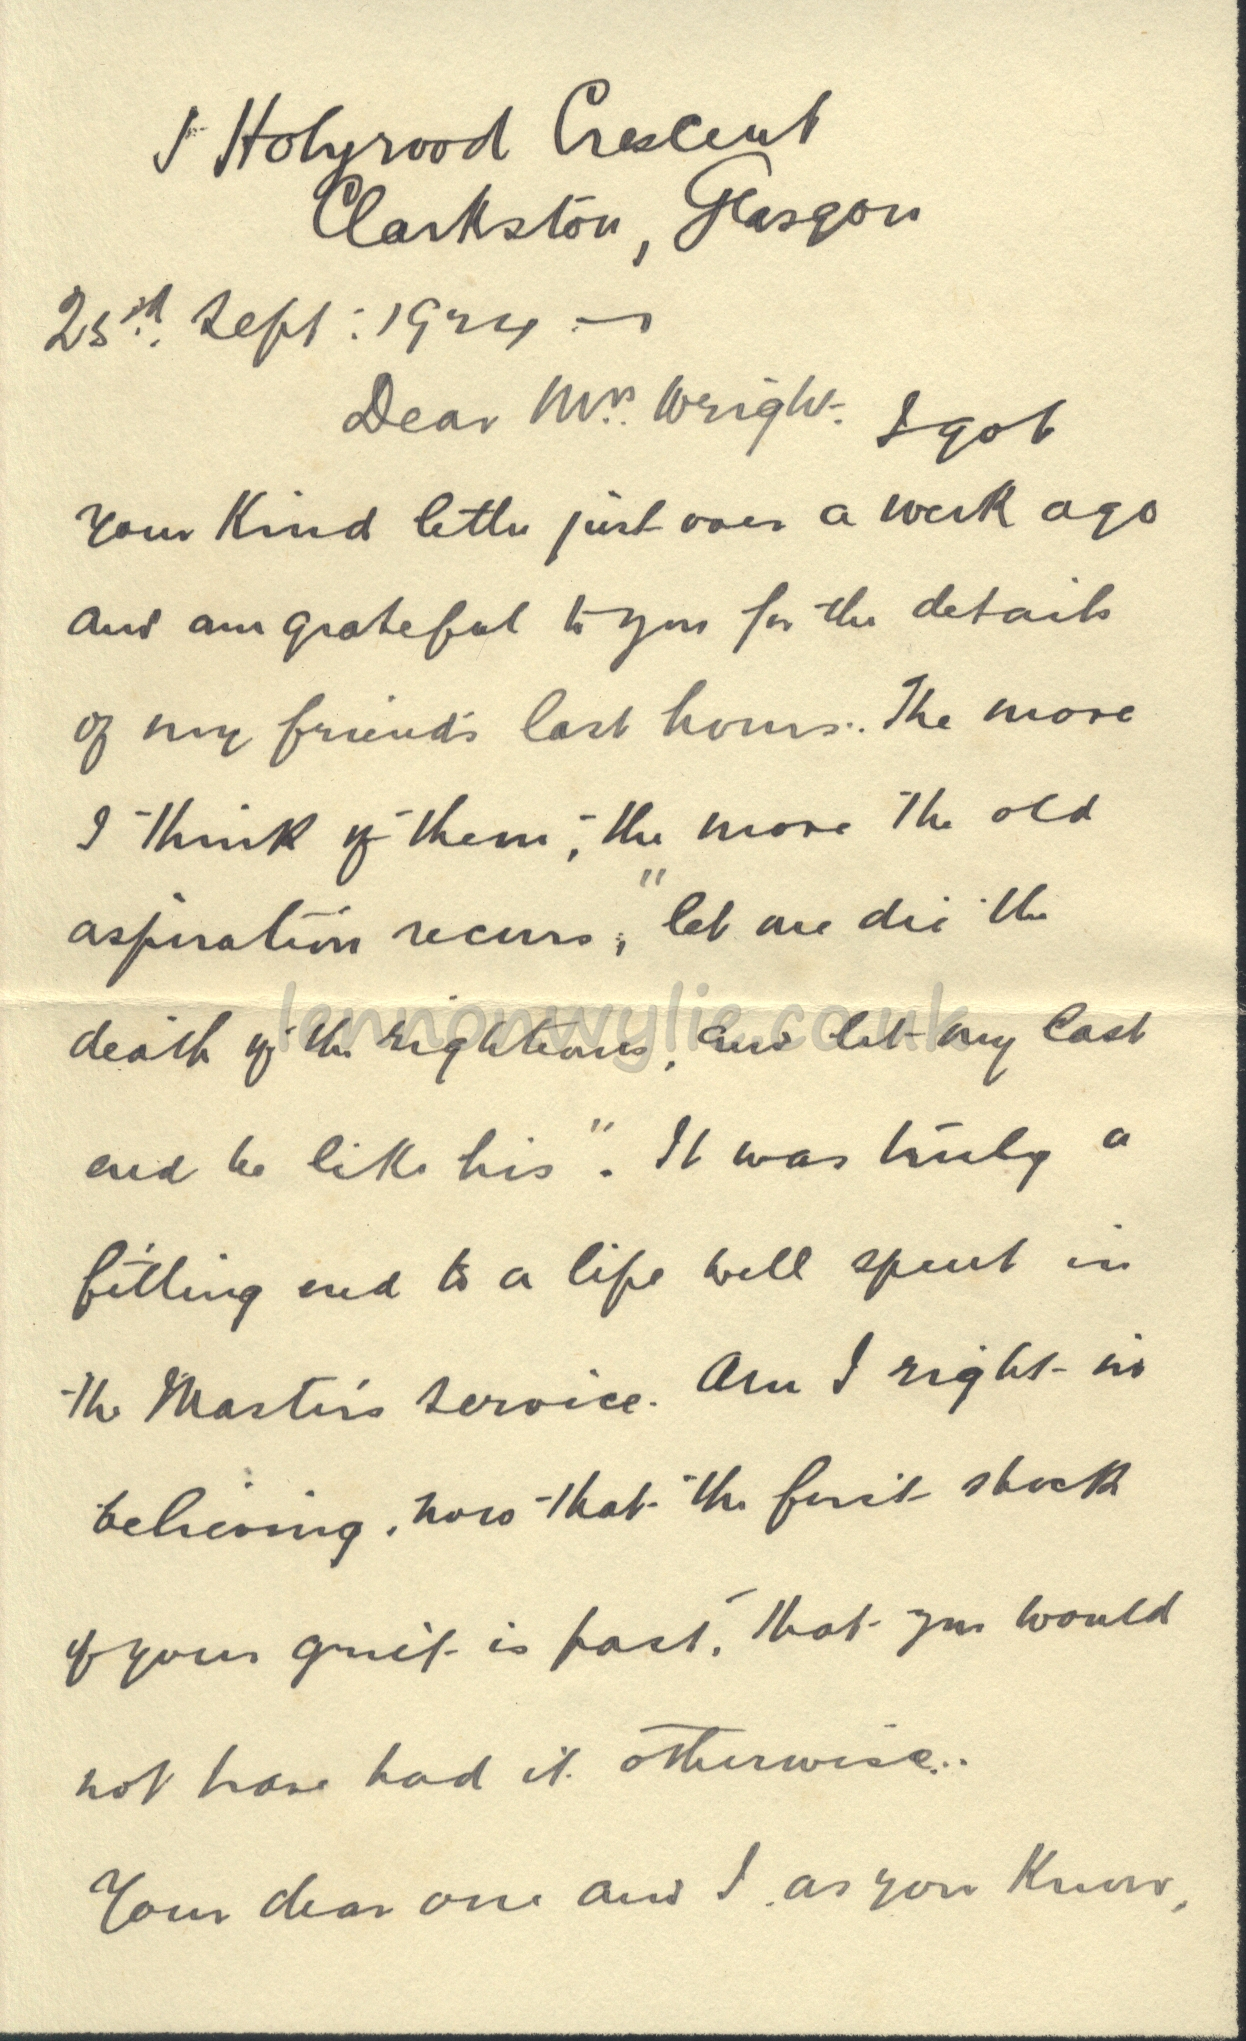 Holyrood Crescent
Clarkston, Glasgow
Sept: 19
Dear Mrs. Wright. I got
your kind letter just over a week ago
and am grateful to you for the details
of my friend's last hours. The more
I think of them, the more the old
aspiration recurs, "let me die the
death of the righteous, and let my last
end be like his". It was truly a
fitting end to a life well spent in
the Master's service. Am I right in
believing, now that the first shock
of your grief is past, that you would
not have had it otherwise..
Your dear one and I, as you know,
lennonwylie.co.uk